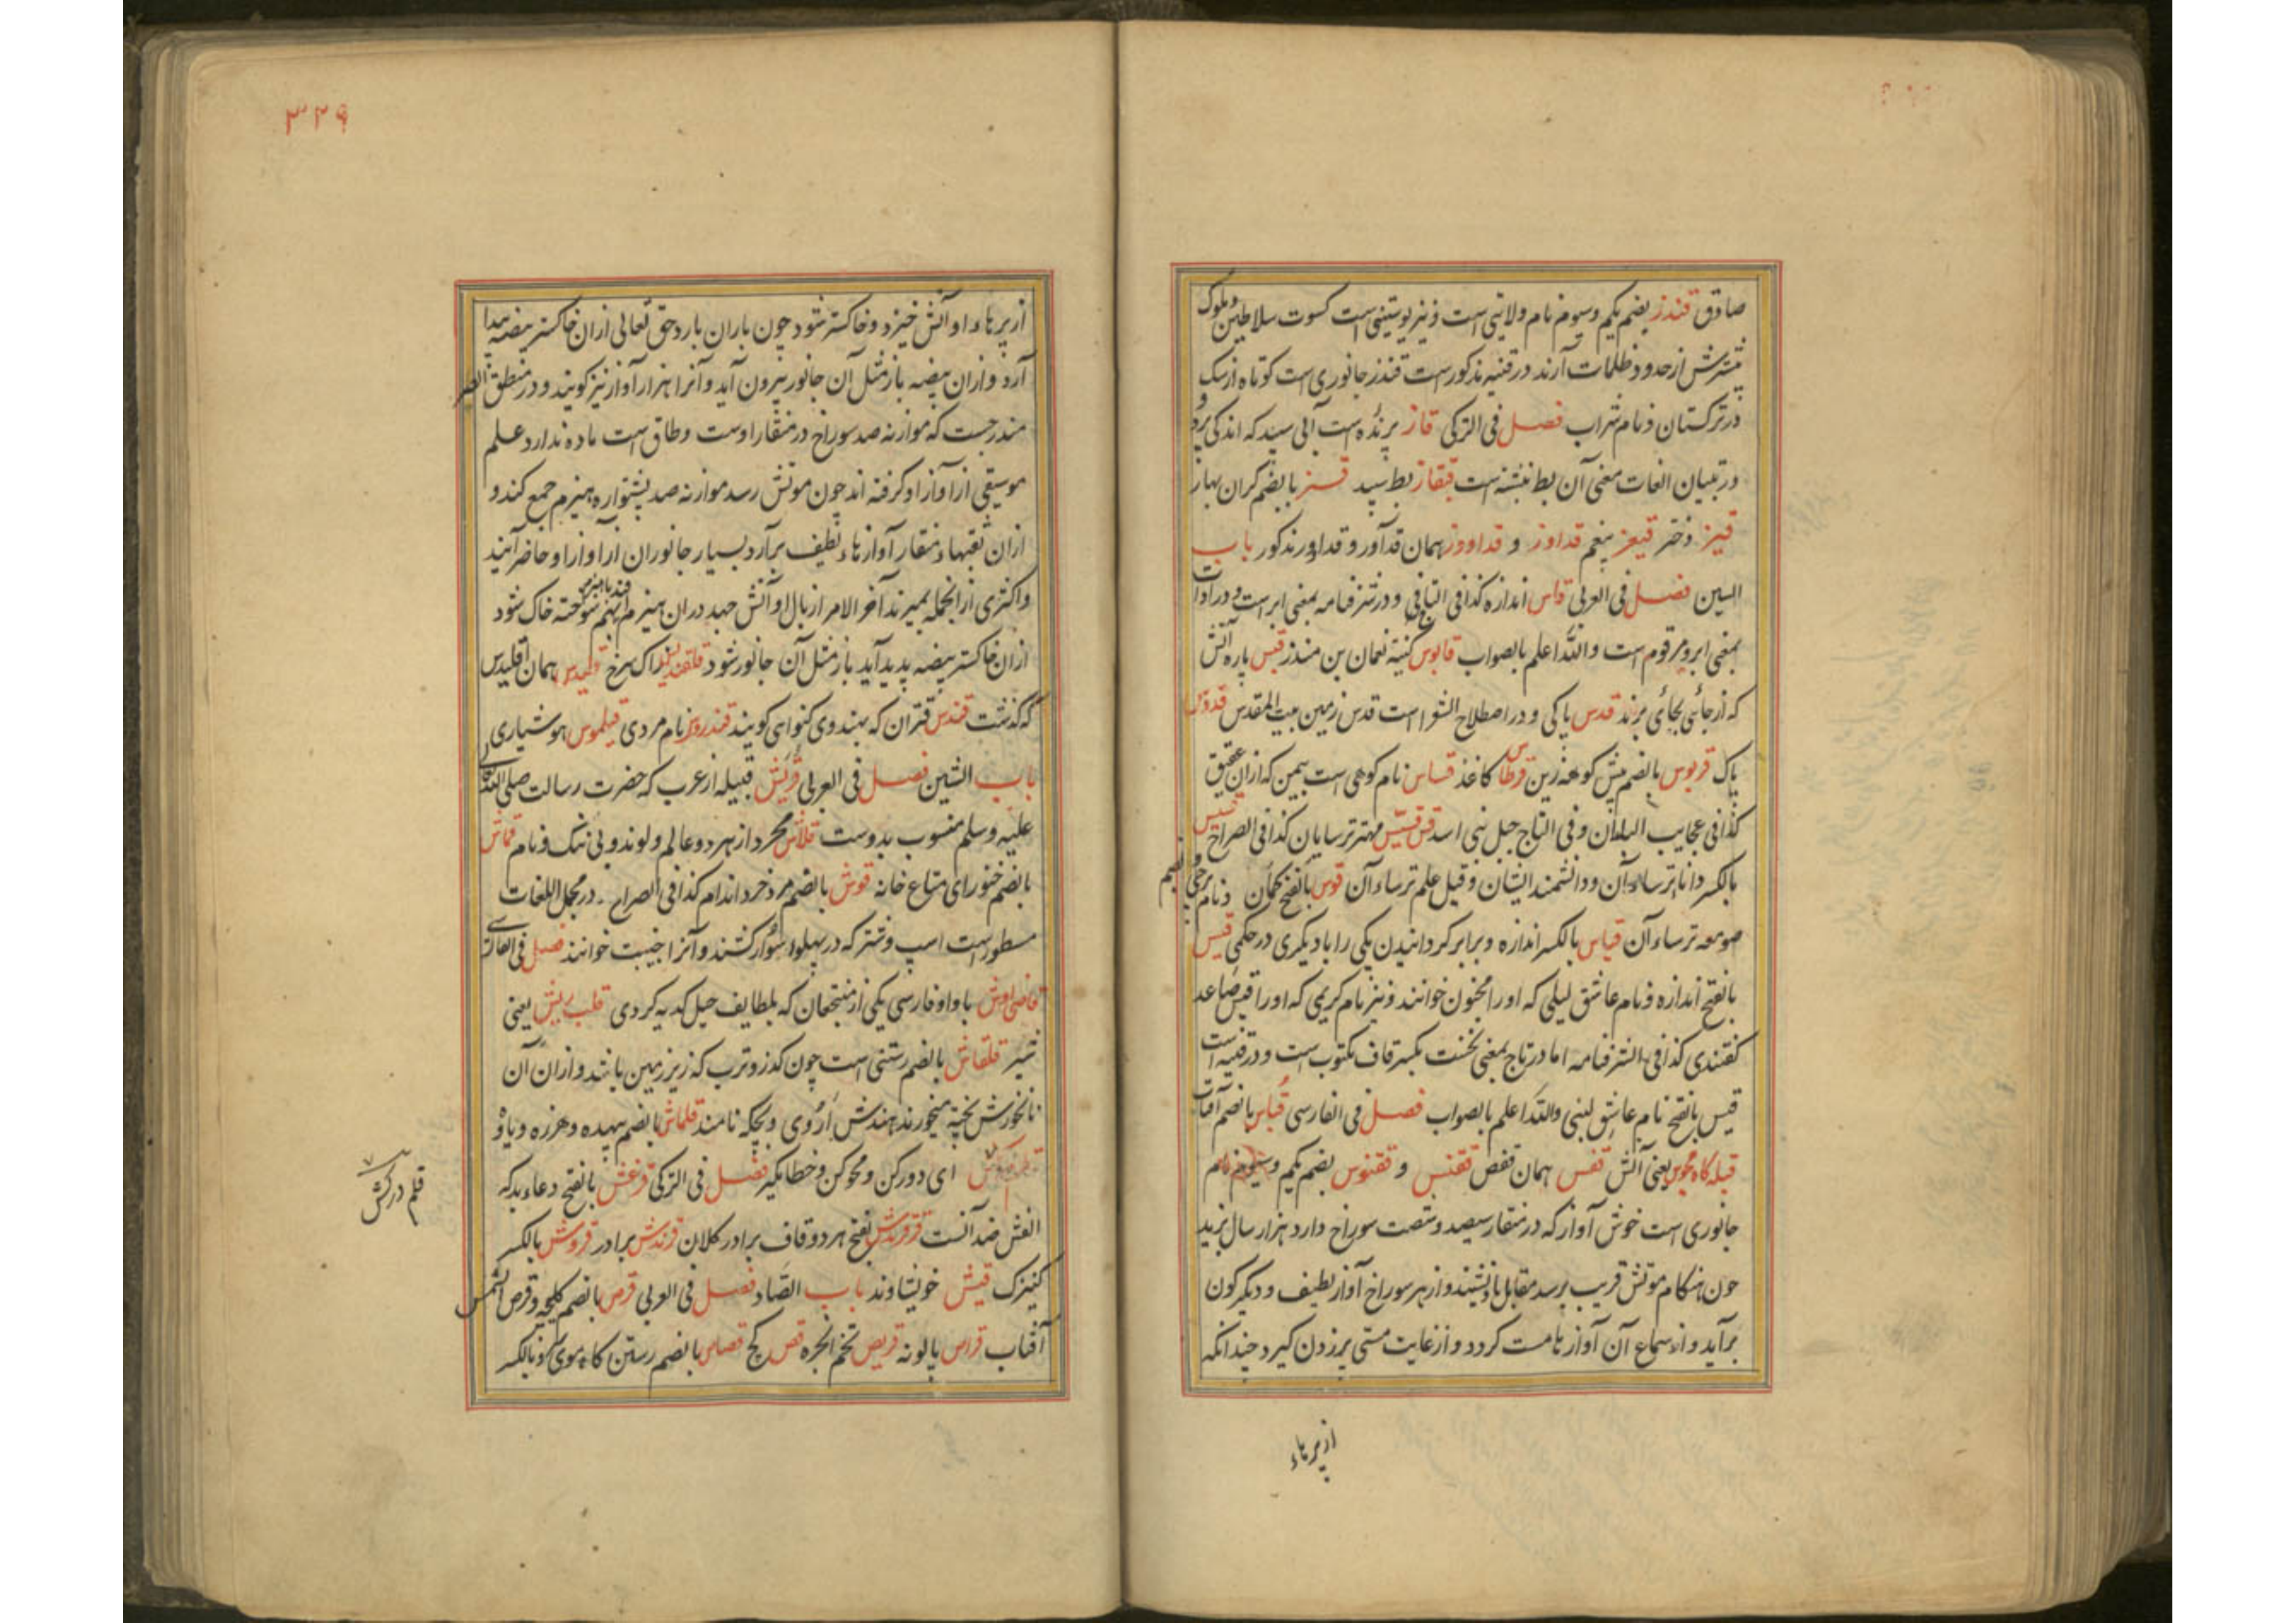 صادق قندز بضم یکم و سوم نام ولایتی است و نیز پوستینی است کسوت سلاطین و ملوک
بیشترش از حدود ظلمات آرند در قنیه مذکورست قندز جانوری است کوتاه از سک
در ترکستان و نام شراب فصل فی الترکی قاز پرنده است آبی سپید که اندکی پرد و
در تبیان لغات معنی آن بط نبشته است قبقاز بط سپید قسز بالضم کران بهاز
قیز دختر قیغز بیغم قداوز و قداووز همان قدآور و قداور مذکور باب
السین فصل فی العربی قاس اندازه کذا فی التاج و در شرفنامه بمعنی ابر است و در ادات
بمعنی ابرو مرقوم است والله اعلم بالصواب قابوس کنیة نعمان بن منذر قبس پاره آتش
که از جائی بجائی برند قدس پاکی و در اصطلاح الشعرا است قدس زمین بیت المقدس قدوس
پاک قربوس بالضم پیش کوهه زین قرطاس کاغذ قساس نام کوهی است بیمن که ازان عقیق
کذا فی عجایب البلدان و فی التاج جبل بنی اسد قس قسیس مهتر ترسایان کذا فی الصراح قسیس
بالکسر دانا ترساآن و دانشمند ایشان و قیل علم ترساآن قوس بالفتح کمان و نام برجی و بضم
صومعه ترساآن قیاس بالکسر اندازه و برابر کردانیدن یکی را با دیکری در حکمی قیس
بالفتح اندازه و نام عاشق لیلی که اورا مجنون خوانند و نیز نام کریمی که اورا قیس صاعد
کفتندی کذا فی الشرفنامه اما در تاج بمعنی نخست بکسر قاف مکتوب است و در قنیه است
قیس بالفتح نام عاشق لبنی والله اعلم بالصواب فصل فی الفارسی قباس بالضم آفتاب
قبله کاه مجوس یعنی آتش قفس همان قفص ققنس و ققنوس بضم یکم و سوم نام
جانوری است خوش آواز که در منقار سیصد و شصت سوراخ دارد هزار سال بزید
چون هنکام موتش قریب برسد مقابل باد نشیند و از هر سوراخ آواز لطیف و دیکرکون
برآید و از سماع آن آوازها مست کردد و از غایت مستی پر زدن کیرد چندانکه
از پرهاء
۳۲۹
از پرهاء او آتش خیزد و خاکستر شود چون باران بارد حق تعالی ازان خاکستر بیضه پیدا
آرد و ازان بیضه باز مثل آن جانور بیرون آید و آنرا هزار آواز نیز کویند و در منطق الطیر
مندرجست که موازنه صد سوراخ در منقار اوست و طاق است ماده ندارد علم
موسیقی از آواز او کرفته اند چون موتش رسد موازنه صد پشتواره هیزم جمع کند و
ازان ثقبهاء منقار آوازهاء لطیف برآرد بسیار جانوران از آواز او حاضر آیند
و اکثری ازانجمله بمیرند آخر الامر از بال او آتش جهد دران هیزم افتد با هیزم بهم سوخته خاک شود
ازان خاکستر بیضه پدید آید باز مثل آن جانور شود قلقندیس زاک سرخ قلیدس همان اقلیدس
که کذشت قندس قتران که بهندوی کنواهی کویند قندروس نام مردی قیلموس هوشیاری
باب الشین فصل فی العربی قریش قبیله از عرب که حضرت رسالت صلی الله
علیه و سلم منسوب بدوست قلاش مجرد از هر دو عالم و لوند و بی ننک و نام قماش
بالضم خنور ای متاع خانه قوش بالضم مرد خرد اندام کذا فی الصراح در مجمل اللغات
مسطورست اسپ و شتر که در پهلوء سوار کشند و آنرا جنیبت خوانند فصل فی الفارسی
قاضی اوش با واو فارسی یکی از منتجعان که بلطایف حیل کدیه کردی قلب ریش یعنی
شیر قلقاش بالضم رستنی است چون کذر و ترب که زیر زمین باشد و ازان آن
نانخورش پخته میخورند هندش اروی و بچکه نامند قلماش بالضم بیهده و هرزه و یاوه
ای دور کن و محو کن و خطا بکیر فصل فی الترکی قرغش بالفتح دعاء بد که
الغش ضد آنست قرقرندش بفتح هر دو قاف برادر کلان قرندش برادر قروش بالکسر
کنیزک قیش خویشاوند باب الصاد فصل فی العربی قرص بالضم کلیچه و قرص الشمس
آفتاب قراص بابونه قریص تخم انجره قص کچ قصاص بالضم رستن کاه موی سر و بالکسر
قلم درکش